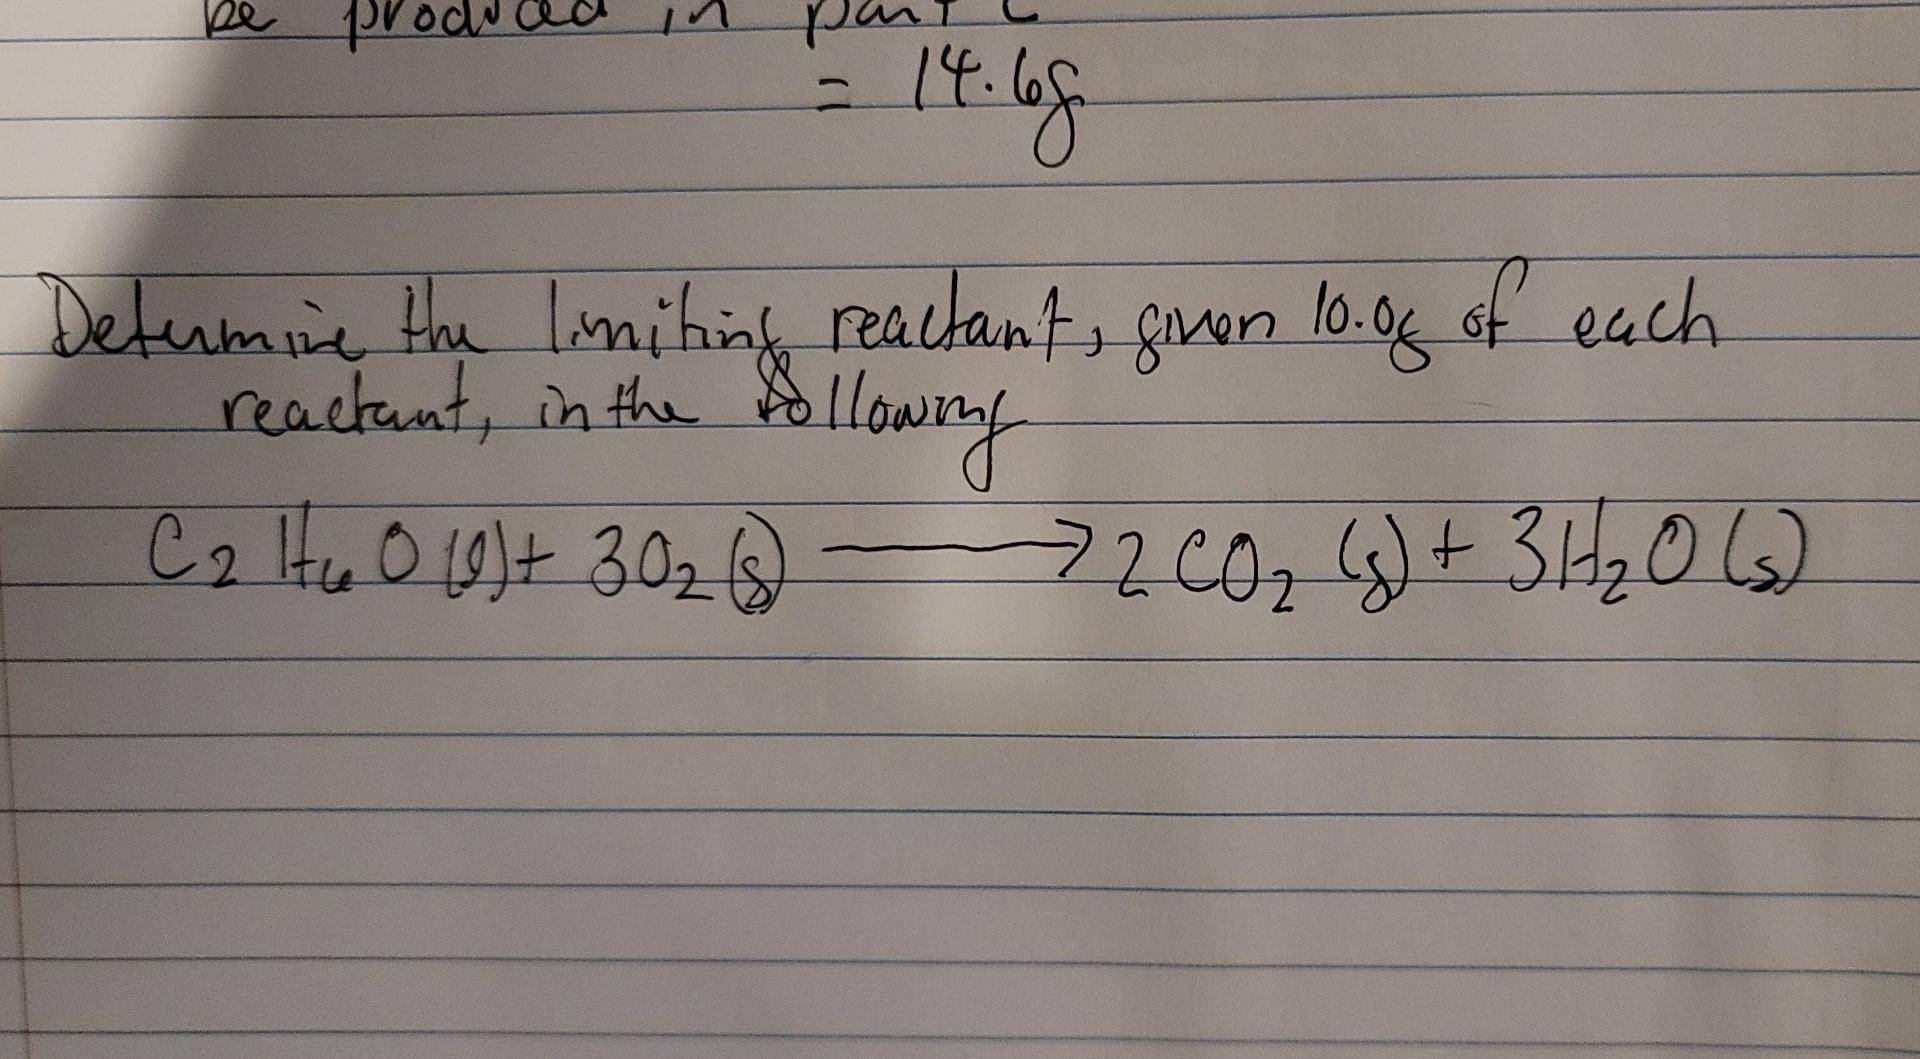 be produced in part C
= 14.6g
Determine the limiting reactant, given 10.0g of each
reactant, in the following
C2 H6 O (g) + 3O2 (g) → 2 CO2 (g) + 3H2O (g)